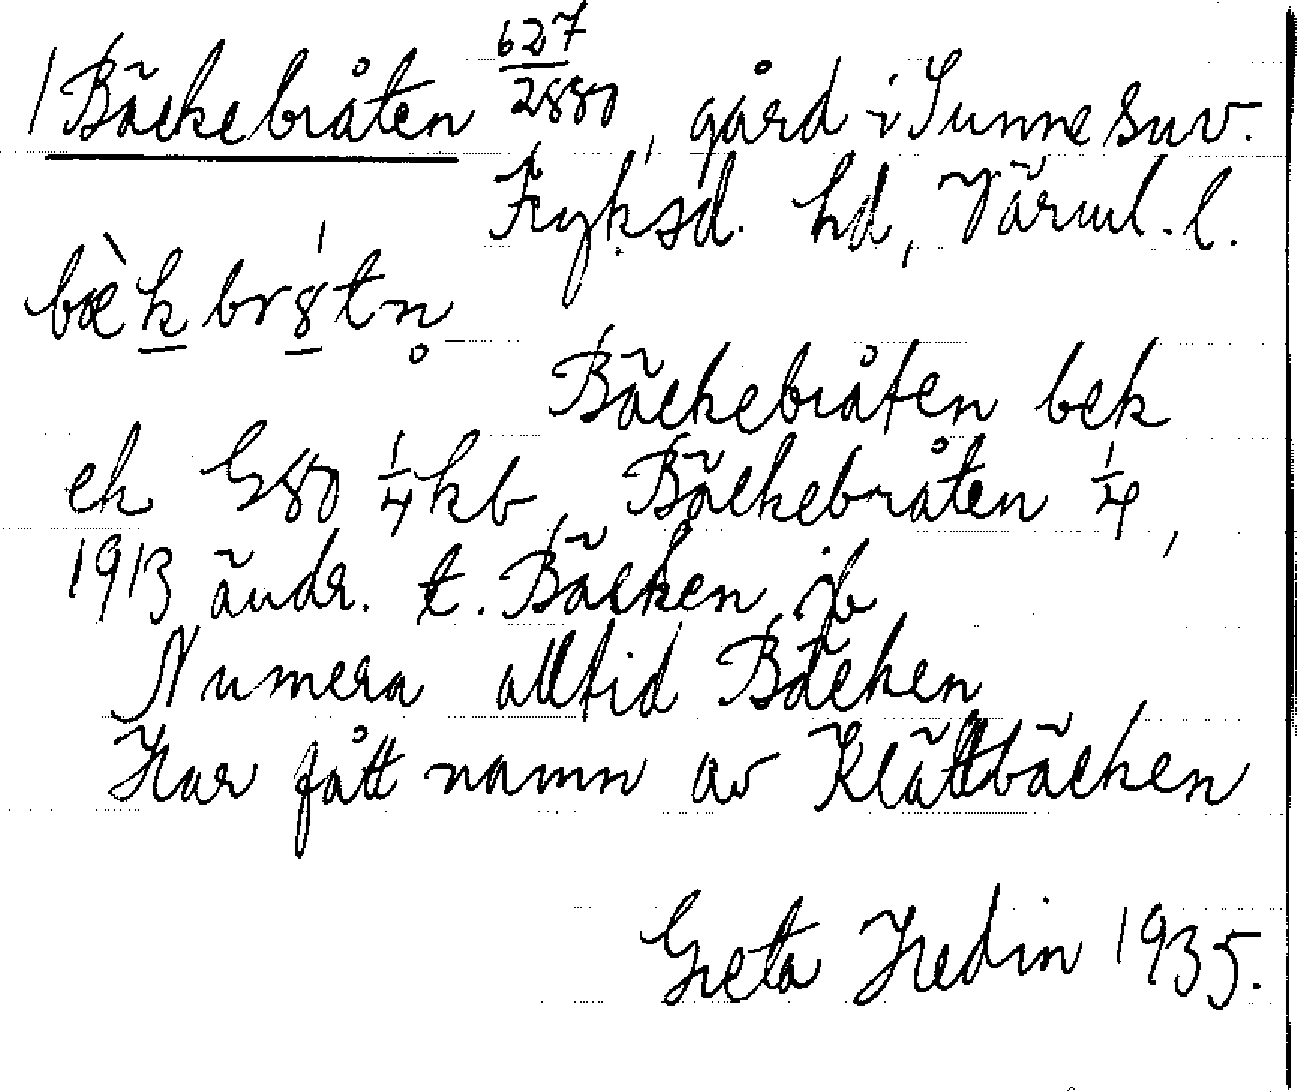 1 Bäckebråten 627/2880, gård i Sunne snv.
Fryksd. hd, Värml. l.
bæ̀k br8́tn̥
Bäckebråten bek
ek G80 1/4 kb, Bäckebråten 1/4,
1913 ändr. t. Bäcken jb
Numera alltid Bäcken
Har fått namn av Klättbäcken
Greta Hedin 1935.